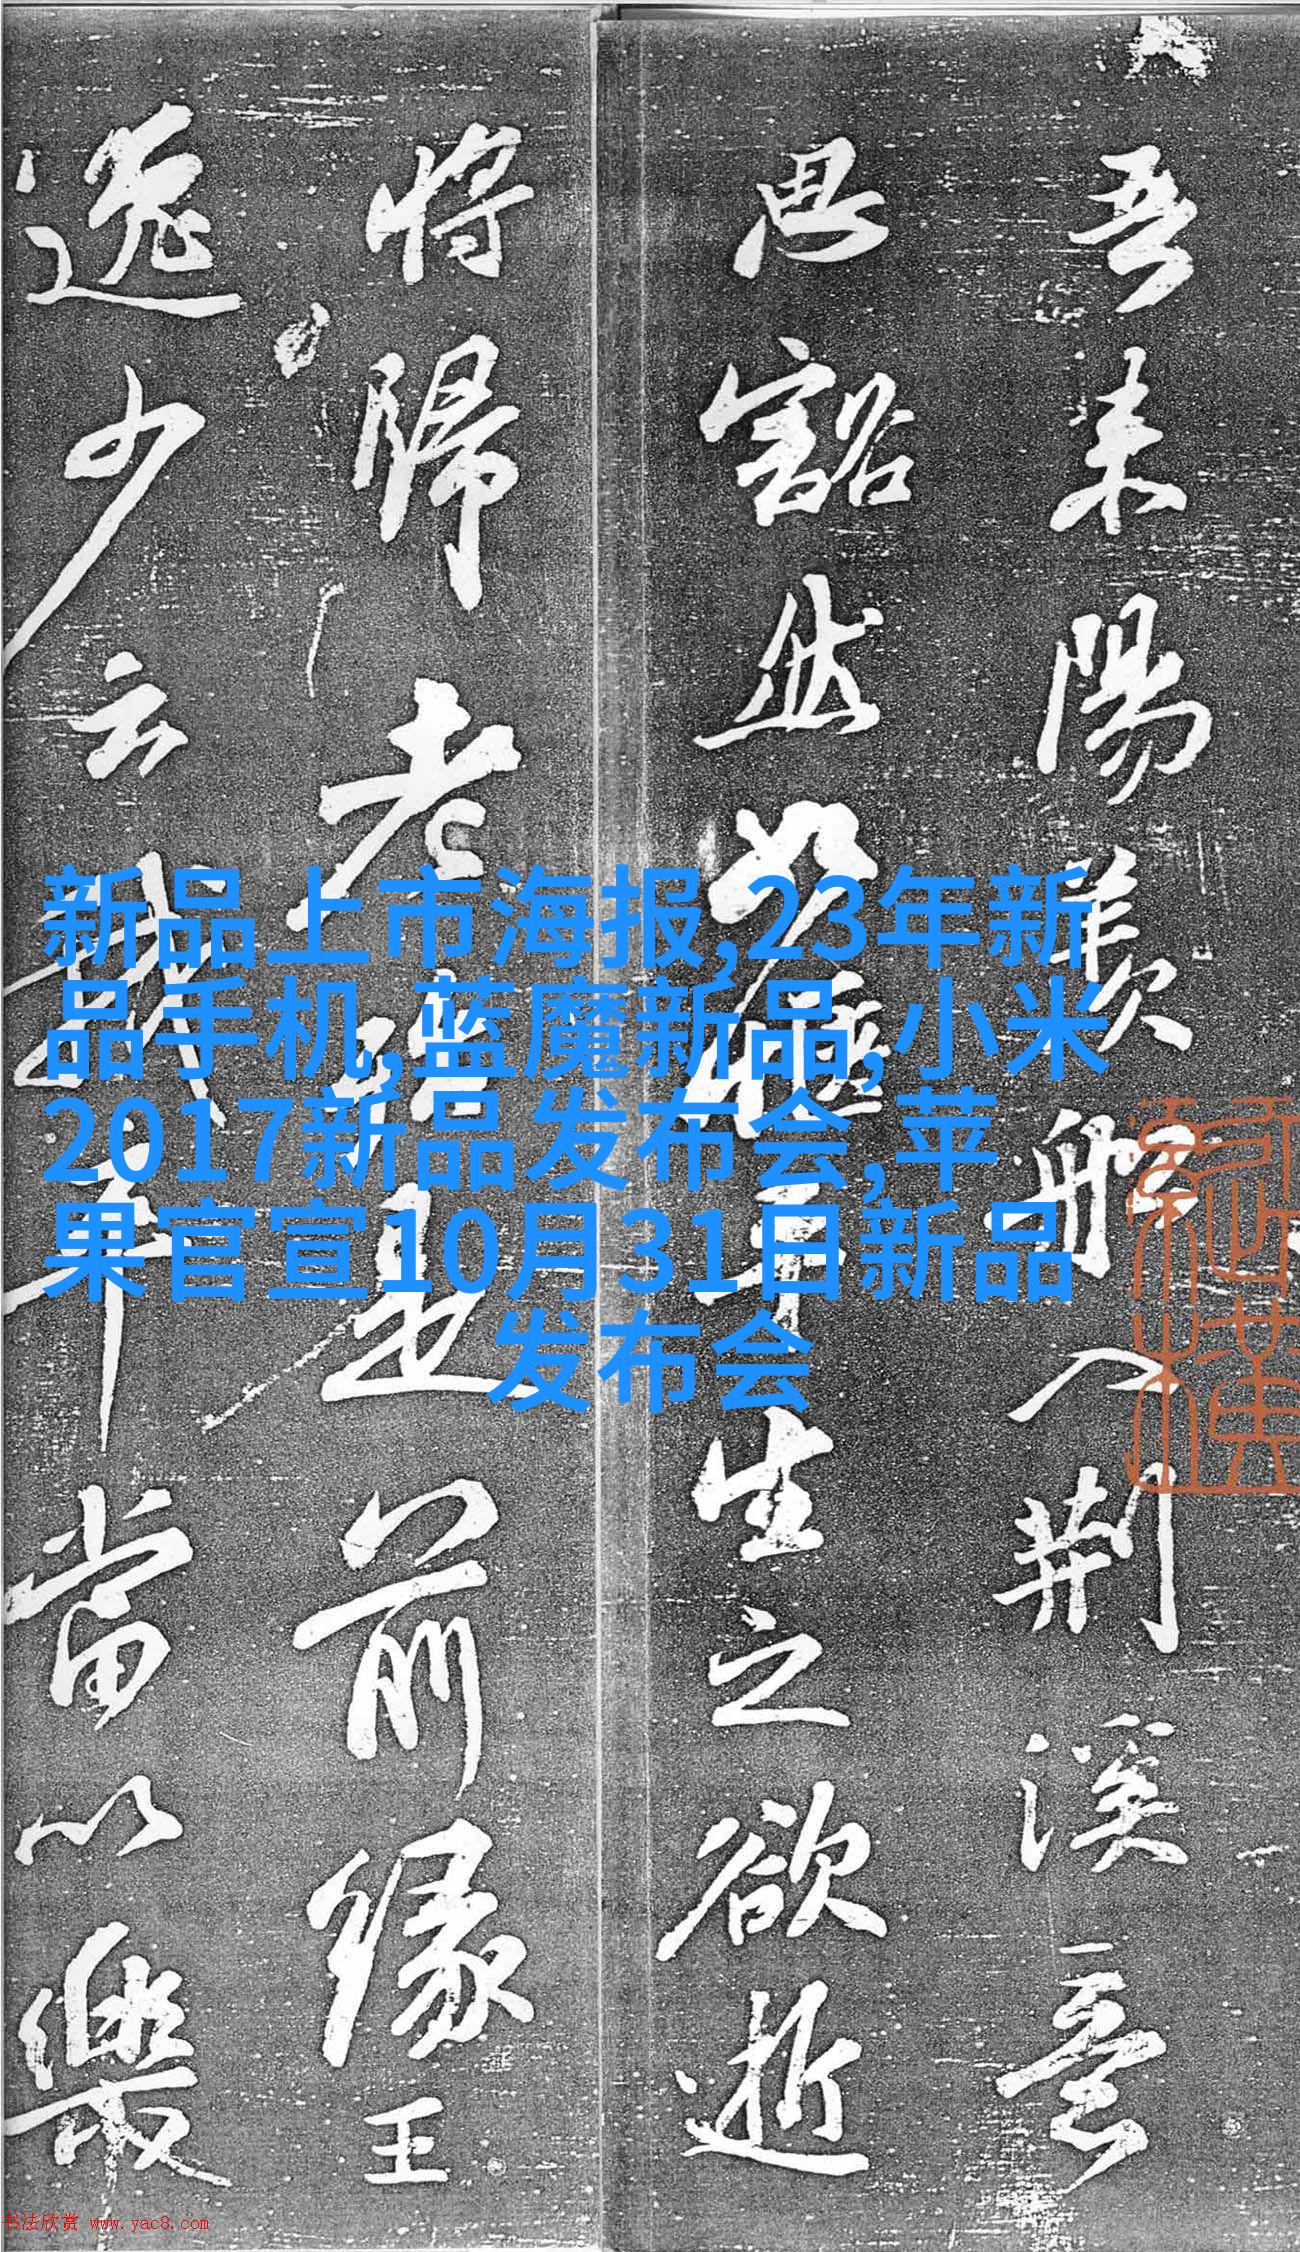 吾来陽羨船入荆溪意
思豁然如愜平生之欲逝
将歸老殆是前緣王
逸少云我卒當以樂
新品上市海报,23年新
品手机,蓝魔新品,小米
2017新品发布会,苹
果官宣10月31日新品
发布会
书法欣赏 www.yac8.com